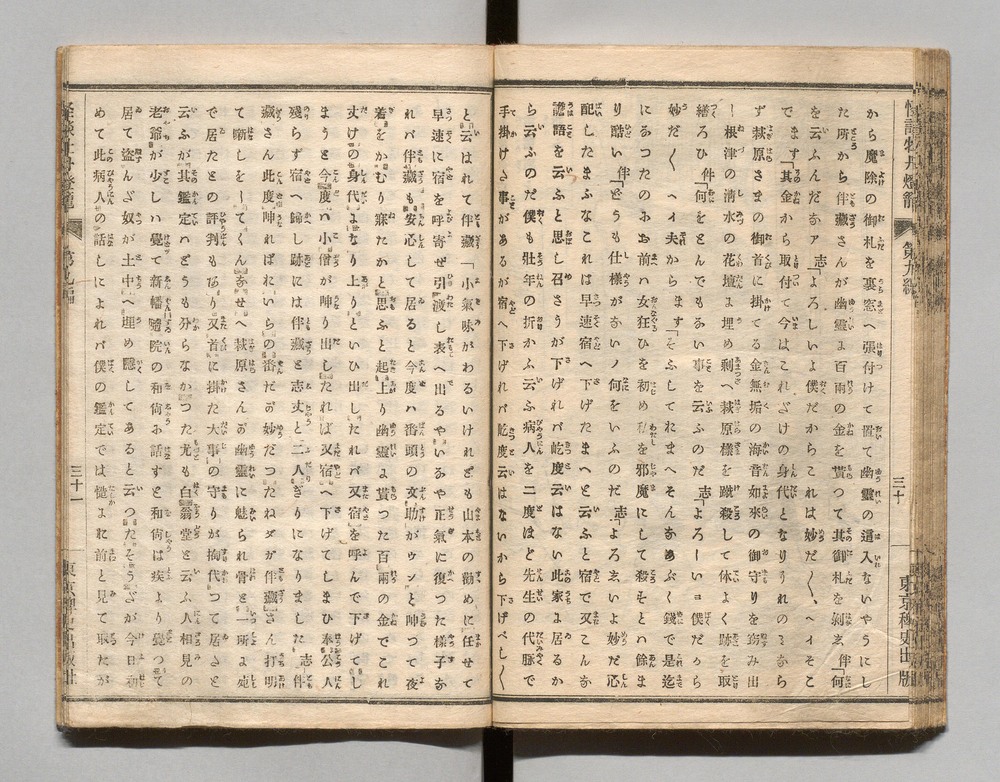 怪談牡丹燈籠
第九編
三十
東京稗史出版
から魔除の御札を裏窓へ張付けて置て幽靈の這入ないやうにし
た所から伴藏さんが幽靈よ百兩の金を貰つて其御札を剝ゑ 伴「何
を云ふんだなア 志「よろしいよ僕だからこれは妙だ〱、ヘイそこ
でます「其金から取付て今はこれ丈けの身代となりうれのミなら
ず萩原さまの御首に掛てる金無垢の海音如來の御守りを窃み出
し根津の清水の花壇よ埋め剩へ萩原樣を蹴殺して体よく跡を取
繕ろひ 伴「何をとんでもない事を云ふのだ 志「よろーいヨ僕だから
妙だ〱 ヘイ夫からます「そふしてれまへそんなあぶく錢で是迄
にるつたのホお前ハ女狂ひを初め私を邪魔にして殺そとハ餘ま
り酷い 伴「どうも仕樣がないノ何をいふのだ 志「よろゑいよ妙だ心
配したまふなこれは早速宿へ下げたまへと云ふと宿で又こんな
譫語を云ふと思し召さうが下げれバ屹度云はない此家よ居るか
ら云ふのだ僕も壯年の折かふ云ふ病人を二度ほど先生の代脉で
手掛けさ事があるが宿へ下げれバ屹度云はないから下げべし〱
と云はれて伴藏「小氣味がわるいけれども山本の勸めに任せて
早速に宿を呼寄せ引渡し表へ出るやいなや正氣に復つた樣子な
れバ伴藏も安心して居ると今度ハ番頭の文助がウンと呻つて夜
着をかむり寐たかと思ふと起上り幽靈よ貰つた百兩の金でこれ
丈けの身代よなり上りといひ出したれバ又宿を呼んで下げてし
まうと今度ハ小僧が呻り出したれば又宿へ下げてしまひ奉公人
殘らず宿へ歸し跡には伴藏と志丈と二人ぎりになりました 志「伴
藏さん此度呻れればれいらの番だが妙だつたねダガ伴藏さん打明
て噺しをしてくんなせへ萩原さんが幽靈に魅られ骨と一所よ死
で居たとの評判もあり又首に掛た大事の守りが掏代つて居さと
云ふが其鑑定ハどうも分らなかつた尤も白翁堂と云ふ人相見の
老爺が少しハ覺て新幡隨院の和尚よ話すと和尚は疾より覺つて
居て盜んだ奴が土中へ埋め隱してあると云つたそうだが今日初
めて此病人の話しによれバ僕の鑑定では慥よれ前と見て取たが
怪談牡丹燈籠
第九編
三十一
東京稗史出版社